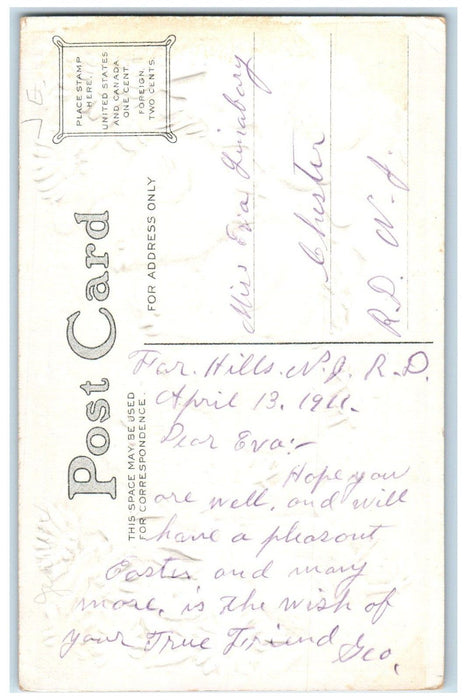 PLACE STAMP
HERE.
UNITED STATES
AND CANADA
ONE CENT.
FOREIGN.
TWO CENTS.
Post Card
FOR ADDRESS ONLY
THIS SPACE MAY BE USED
FOR CORRESPONDENCE.
Miss Eva
Chester
R.D. N.J.
Far. Hills. N.J. R.D.
April 13, 1911.
Dear Eva:-
Hope you
are well, and will
have a pleasant
Easter and many
more, is the wish of
your True Friend
Geo.